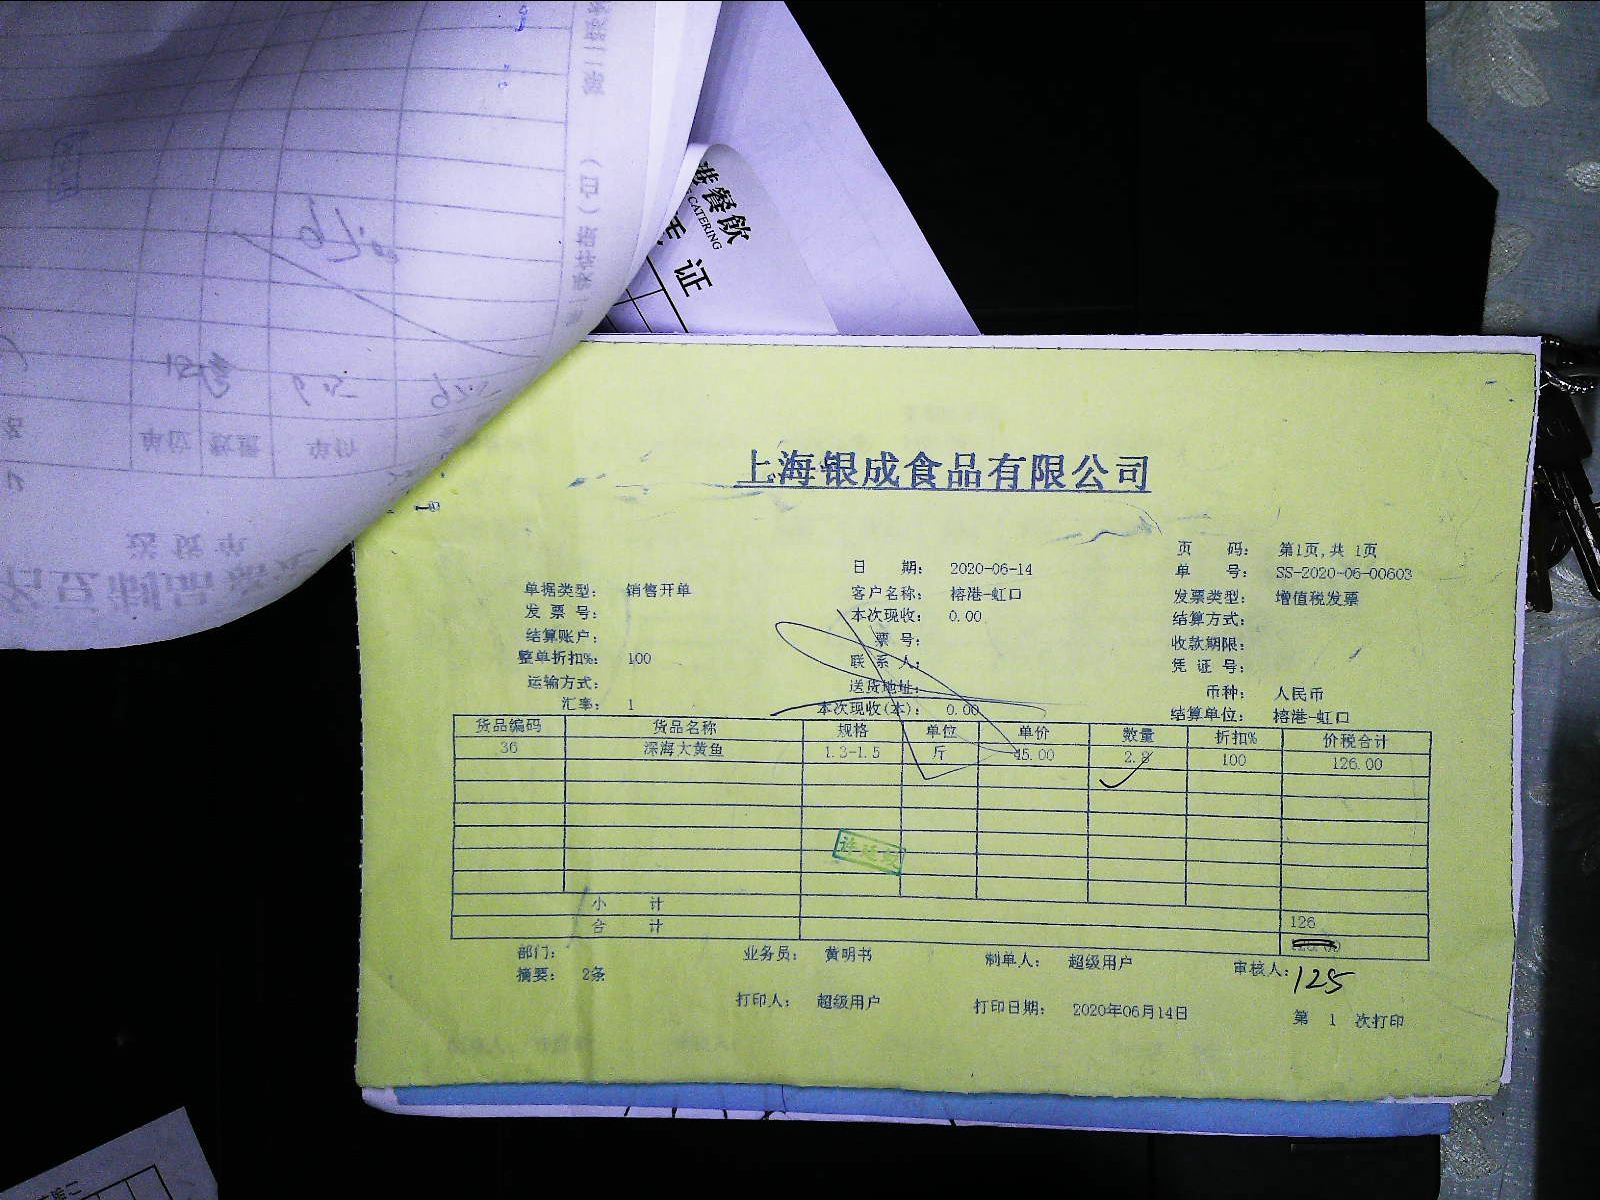 港餐飲
CATERING
证
上海银成食品有限公司
页 码: 第1页,共 1页
日 期: 2020-06-14
单 号: SS-2020-06-00603
单据类型: 销售开单
客户名称: 榕港-虹口
发票类型: 增值税发票
发 票 号:
本次现收: 0.00
结算方式:
结算账户:
票 号:
收款期限:
整单折扣%: 100
联 系 人:
凭 证 号:
运输方式:
送货地址:
币种: 人民币
汇率: 1
本次现收(本): 0.00
结算单位: 榕港-虹口
货品编码 货品名称 规格 单位 单价 数量 折扣% 价税合计
36 深海大黄鱼 1.3-1.5 斤 45.00 2.8 100 126.00
小 计 126
合 计
部门: 业务员: 黄明书 制单人: 超级用户 审核人: 125
摘要: 2条
打印人: 超级用户 打印日期: 2020年06月14日 第 1 次打印